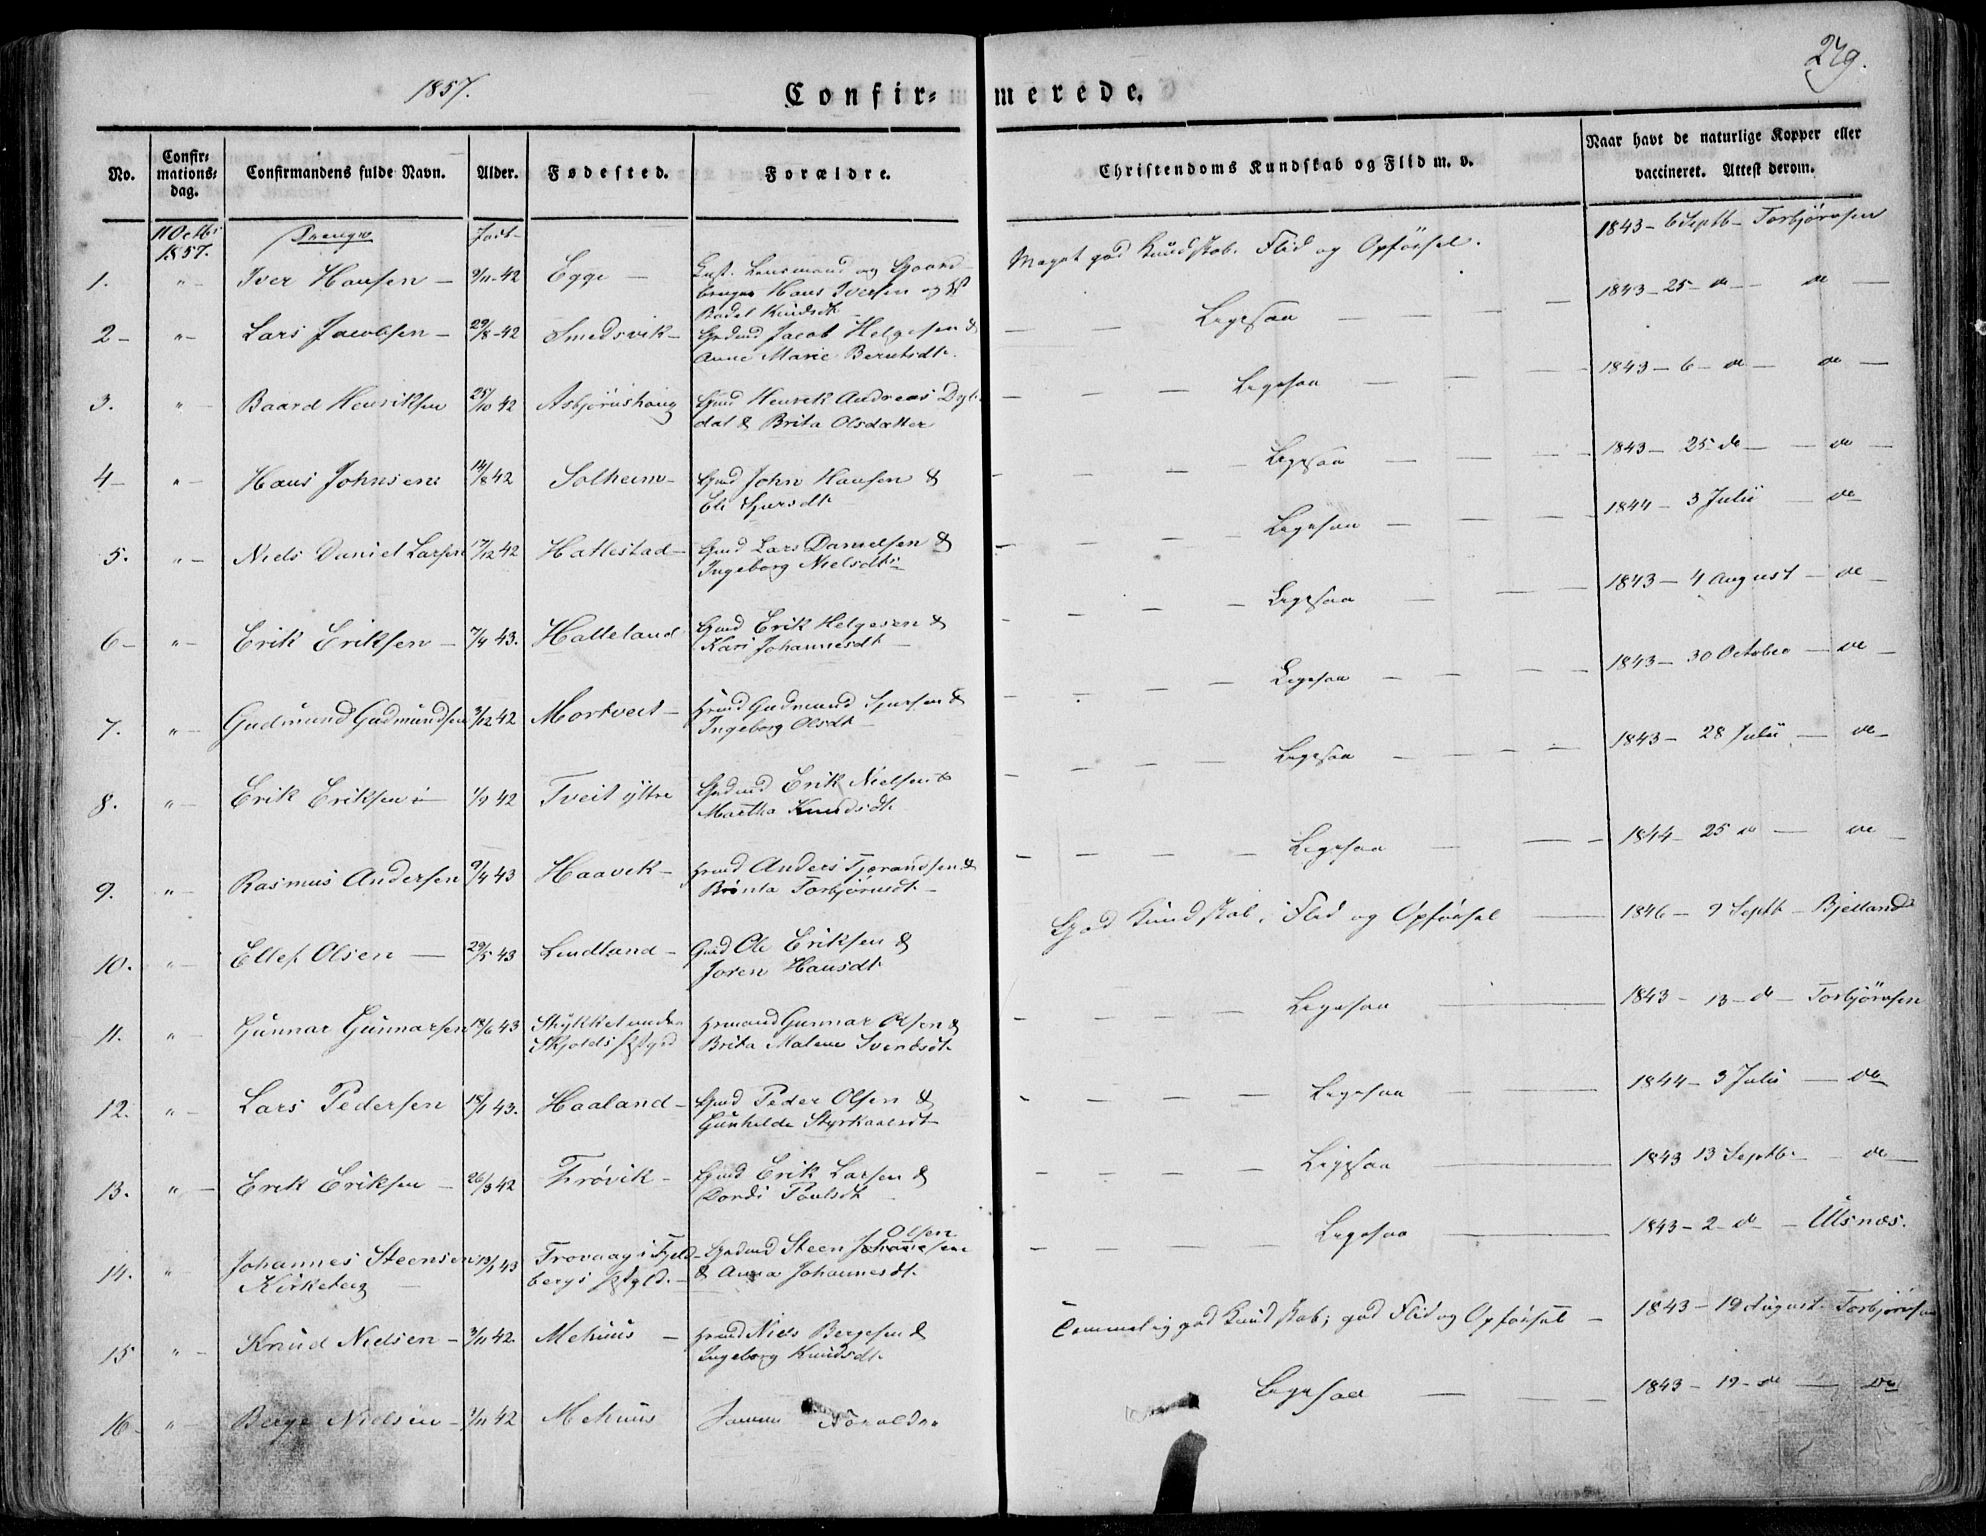 1857.
279.
Confir= merede.
No.
Confir=
mations=
dag.
Confirmandens fulde Navn.
Alder.
Fødested.
Forældre.
Christendoms Kundskab og Flid m. v.
Naar havt de naturlige Kopper eller
vaccineret. Attest derom.
11 Octbr
1857.
Drenge
Født
1. " Iver Hansen – 9/11-42 Egge – Lensmand og Gaard
bruger Hans Iversen og
Bodel Knudsdt
Meget god Kundskab, Flid og Opførsel. 1843 – 6 Septb – Torbjørnsen
2 – " Lars Jacobsen – 29/8-42 Smedsvik – Grdmd Jacob Helgesen &
Anne Marie Berntsdt.
Ligesaa 1843 – 25 – do – do –
3. " Baard Henriksen 25/10 42 Asbjørnshaug Gmd Henrik Andreas
dal & Brita Olsdatter
Ligesaa 1843 – 6 – do – do –
4 – " Hans Johnsen 14/8 42 Solheim – Gmd John Hansen &
Eli Sjursdt
Ligesaa 1843 – 25 do – do –
5. " Niels Daniel Larsen 17/12 42 Hallestad – Gmd Lars Danielsen &
Ingeborg Nielsdtr
Ligesaa 1844 – 3 Julii – do
6 – " Erik Eriksen – 7/4 43. Halleland Gmd Erik Helgesen &
Kari Johannesdt –
Ligesaa 1843 – 4 August – do –
7. " Gudmund Gudmundsen 3/12 42 Mortveit – Hmd Gudmund Sjursen &
Ingeborg Olsdt –
Ligesaa 1843 – 30 October – do –
8. " Erik Eriksen – 1/9 42 Tveit yttre Grdmd Erik Nielsen &
Martha Knudsdt.
Ligesaa 1843 – 28 Julii – do –
9. " Rasmus Andersen 9/4 43 Haavik – Hmd Anders Tjerandsen &
Brönla Torbjørnsdt –
Ligesaa 1844 – 25 do – do –
10. " Ellef Olsen – 29/5 43 Lindland – Gmd Ole Eriksen &
Joren Hansdt.
God Kundskab, Flid og Opførsel 1846 – 9 Septb – Bjelland
11. " Gunnar Gunnarsen 13/6 43 Stykket under
Skjolds Prstgjld
Husmand Gunnar Olsen &
Brita Malene Svendsdt.
Ligesaa 1843 – 13 – do – Torbjørnsen
12. " Lars Pedersen 18/1 43. Haaland – Gmd Peder Olsen &
Gunhilde Styrkaarsdt
Ligesaa 1844 – 3 Julii – do
13. " Erik Eriksen – 26/3 42 Frövik – Gmd Erik Larsen &
Dordi Poulsdt.
Ligesaa 1843 13 Septbr – do –
14. " Johannes Steensen
Kirkeberg – 13/1 43 Trovaag i Fjeld
bergs Prstgjld. –
Olsen
Grdmd Steen Johannesen
& Anna Johannesdt.
Ligesaa 1843 – 2 – do – Ulsnæs.
15 " Knud Nielsen – 3/11 42. Mehuus – Hmd Niels Bergesen &
Ingeborg Knudsdt.
Temmelig god Kundskab; god Flid og Opførsel – 1843 – 19 August – Torbjørnsen
16 – " Berge Nielsen – 3/11 42 Mehuus Samme Forældre
Ligesaa 1843 – 19 – do – do